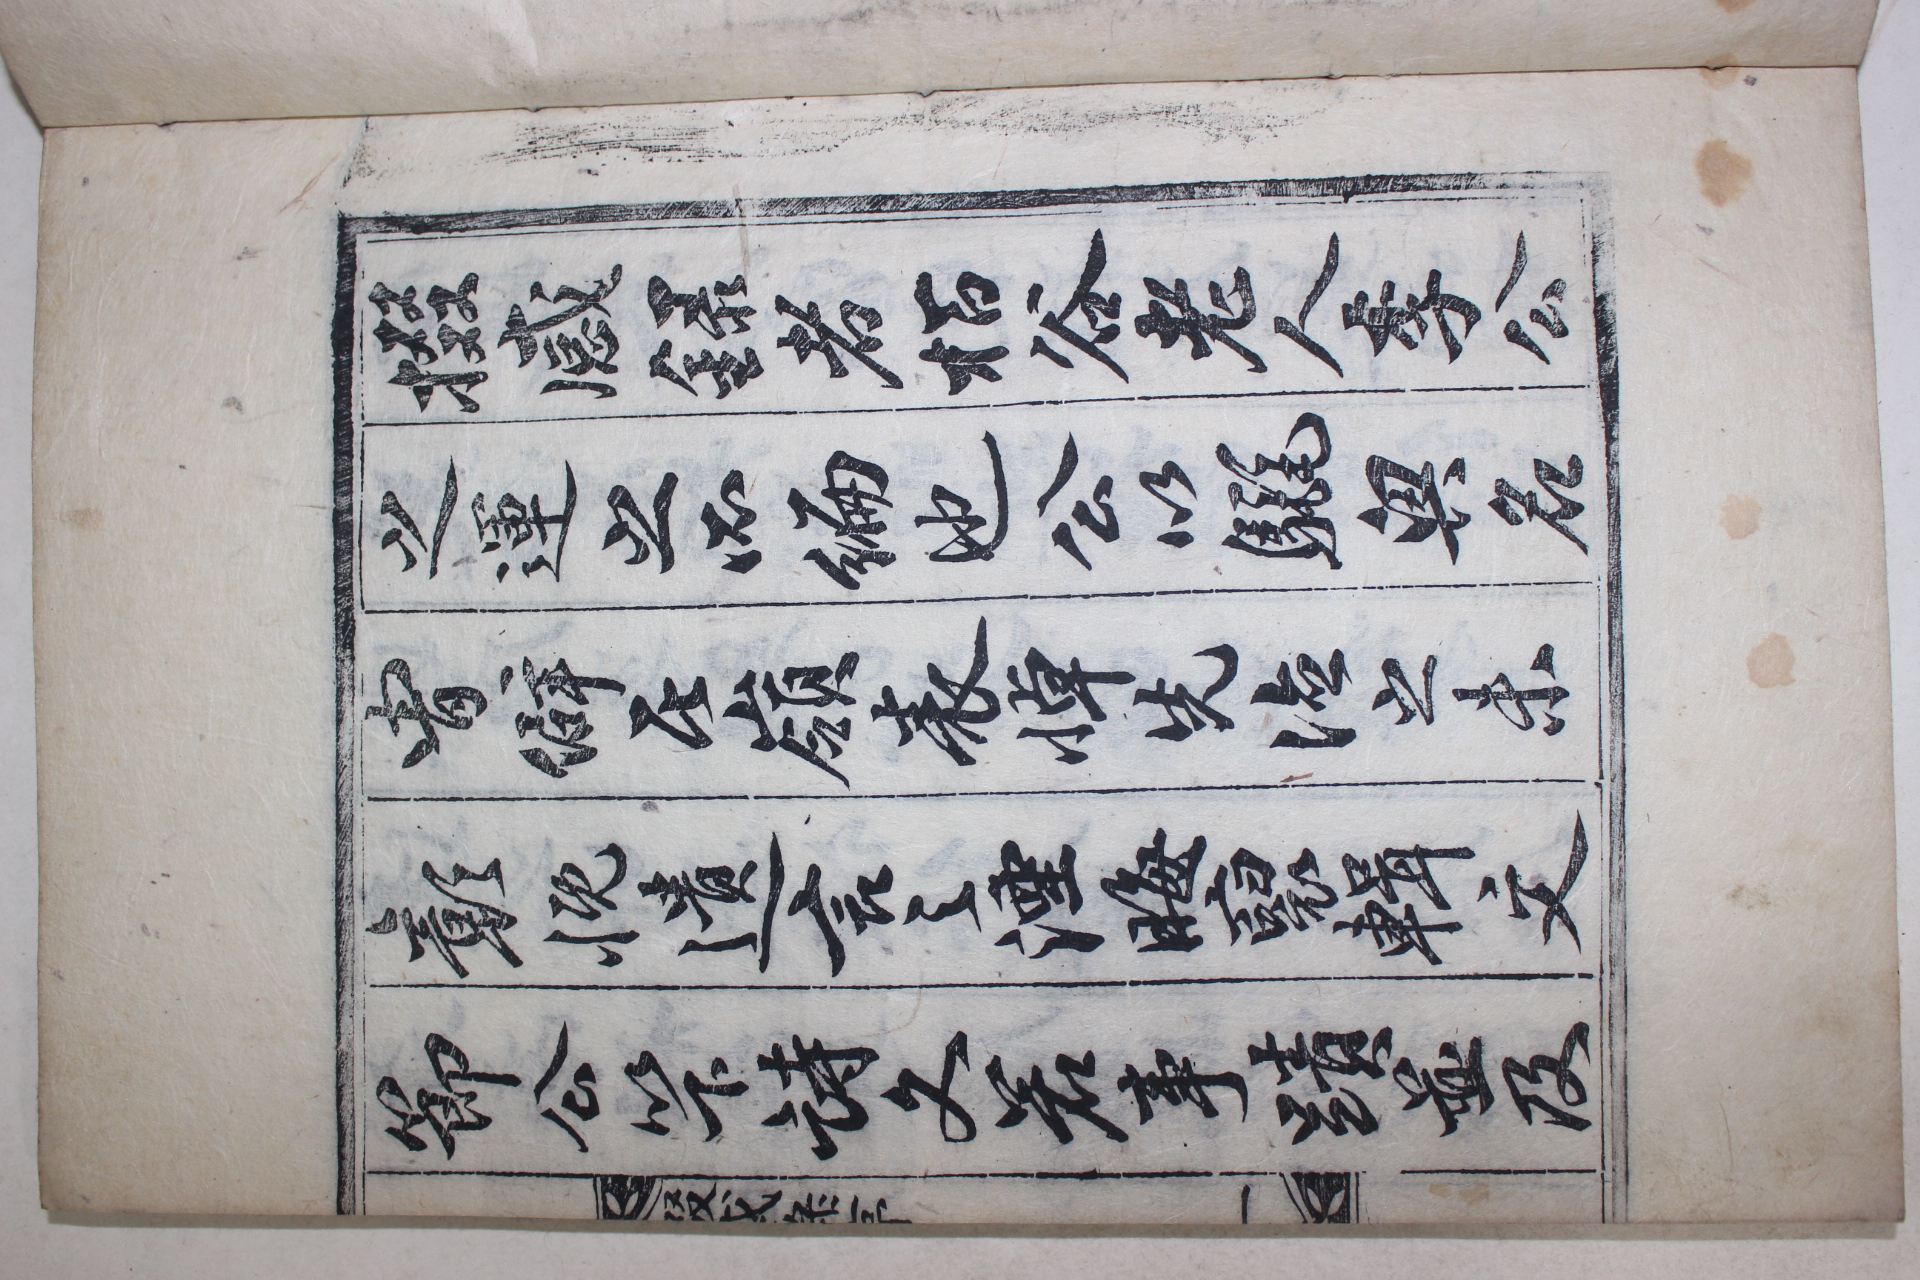 掇感錄者栢谷老人李公
之運之所編也公以驪興名
冑僻在嶺表悼先德之未
彰慨遺言之湮晦裒輯文
節公以下詩文若事蹟並及
掇感錄序
一